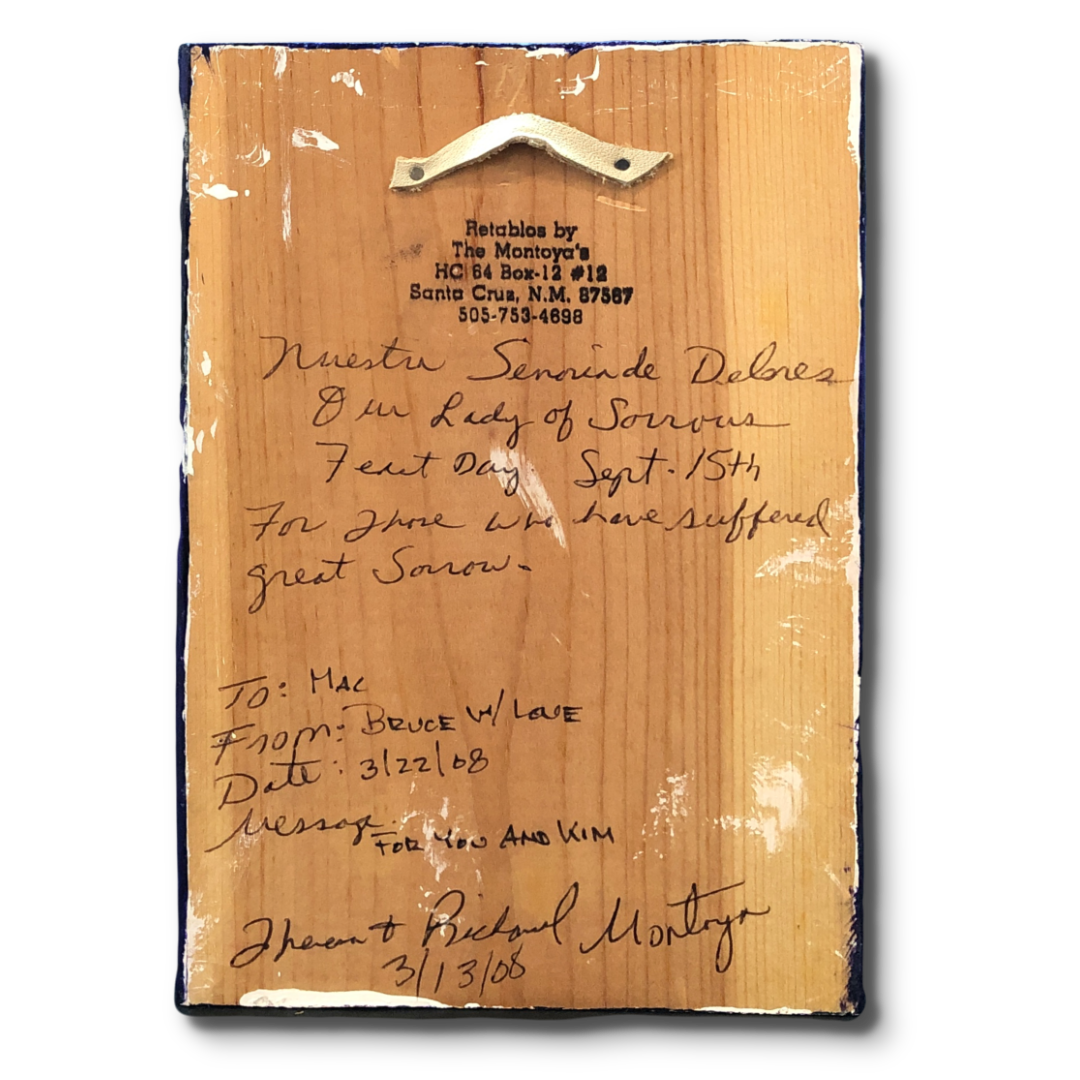 Retablos by
The Montoya's
HC 64 Box-12 #12
Santa Cruz, N.M. 87567
505-753-4698
Nuestra Senorinde Delores
Our Lady of Sorrows
Feast Day Sept. 15th
For those who have suffered
great Sorrow.
To: MAC
From: BRUCE W/ LOVE
Date: 3/22/08
Message:
FOR YOU AND KIM
+ Richard Montoya
3/13/08